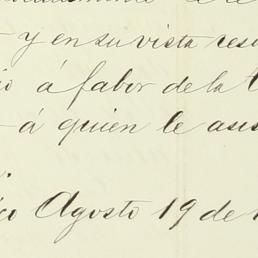 y en su vista res
á fabor de la
á quien le asis
Agosto 19 de